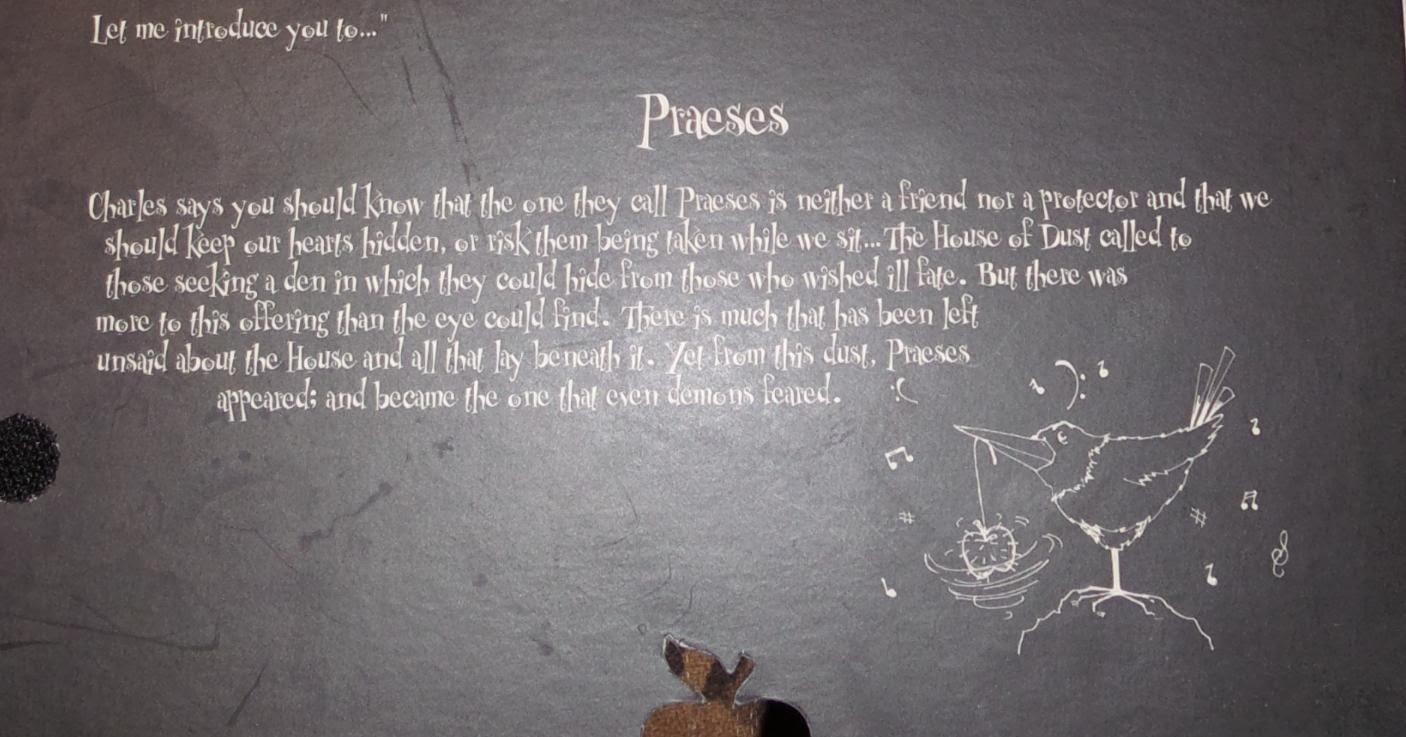 Let me introduce you to..."
Praeses
Charles says you should know that the one they call Praeses is neither a friend nor a protector and that we
should keep our hearts hidden, or risk them being taken while we sit...The House of Dust called to
those seeking a den in which they could hide from those who wished ill fate. But there was
more to this offering than the eye could find. There is much that has been left
unsaid about the House and all that lay beneath it. Yet from this dust, Praeses
appeared; and became the one that even demons feared.